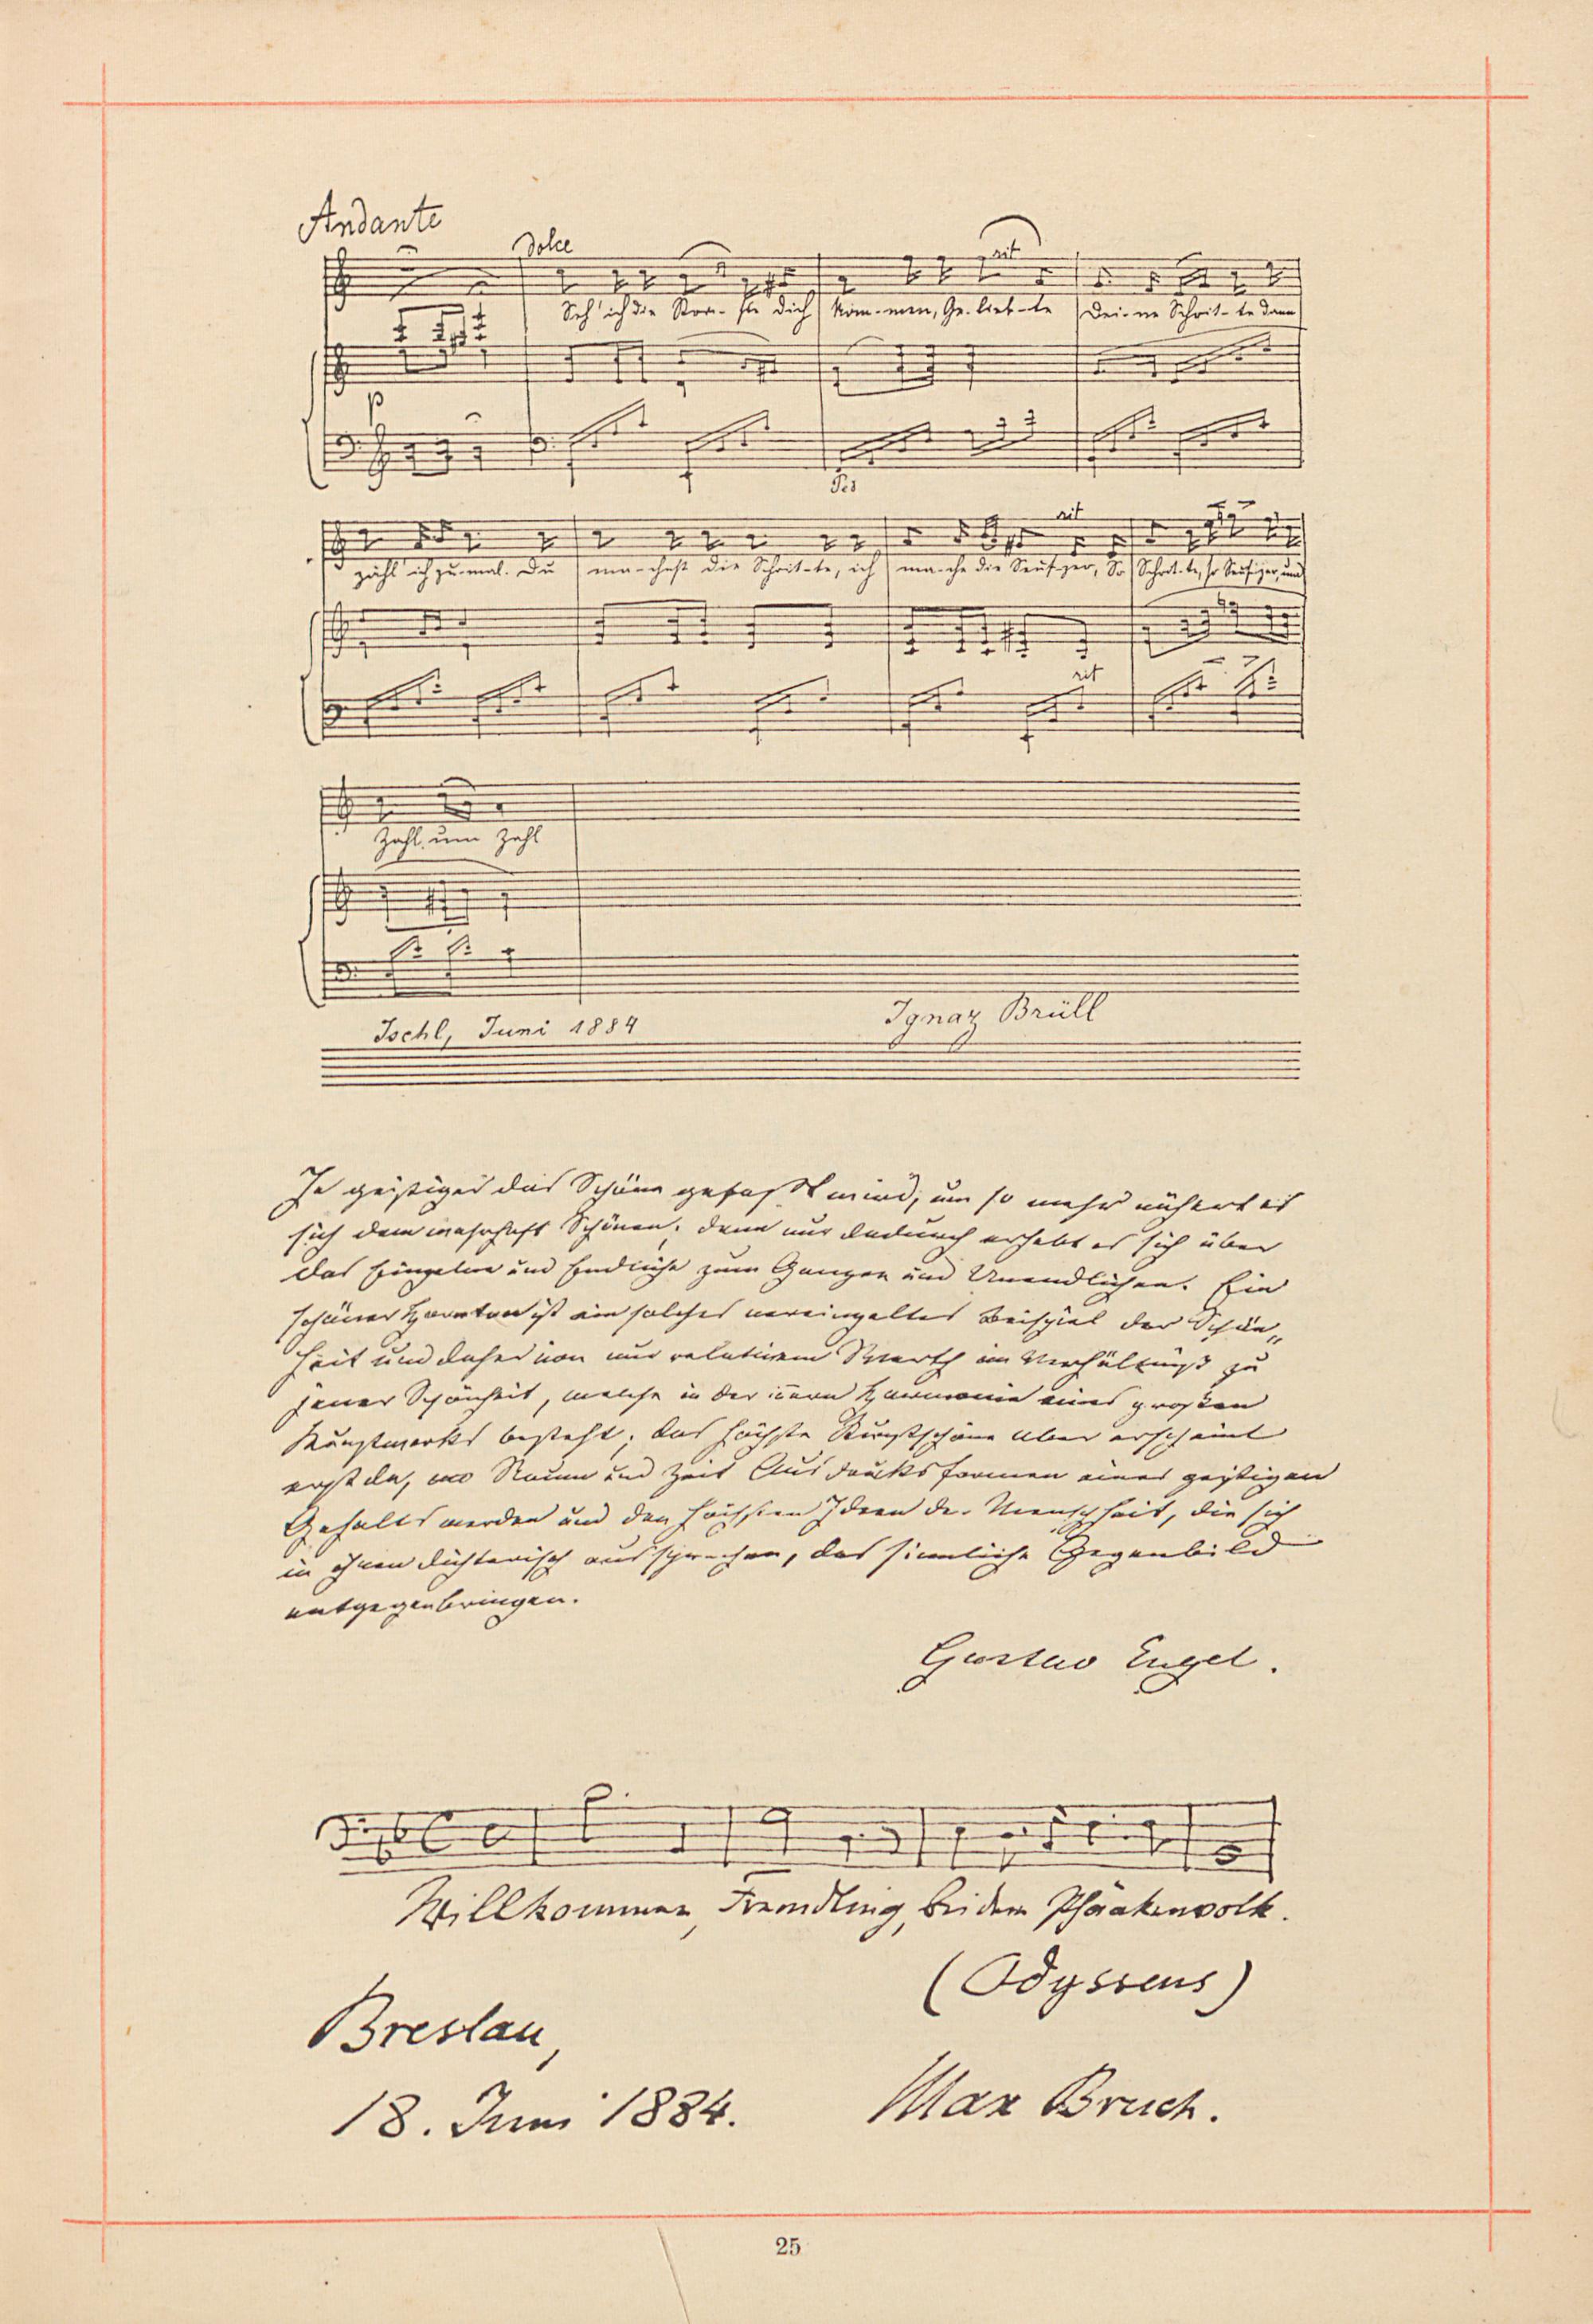 Andante
dolce
rit
Seh' ich die Stor- ste dich kom-men, Ge-lieb-te Dei-ne Schrit-te dann
p
Ped
rit
zähl' ich zu-mal. Du ma-chest die Schrit-te, ich ma-che die Seufzer, So Schrit-te, so Seufzer, und
rit
Zahl um Zahl
Ischl, Juni 1884
Ignaz Brüll
Je geistiger das Schöne gefaßt wird, um so mehr nähert es
sich dem wahrhaft Schönen, denn nur dadurch erhebt es sich über
das Einzelne und Endliche zum Ganzen und Unendlichen. Ein
schöner Hornton ist ein solches vereinzeltes Beispiel der Schön-
heit und daher von nur relativem Werth im Verhältniß zu
jener Schönheit, welche in der innern Harmonie eines großen
Kunstwerks besteht; das höchste Kunstschöne aber erscheint
erst da, wo Raum und Zeit Ausdrucksformen eines geistigen
Gehalts werden und den höchsten Ideen der Menschheit, die sich
in ihnen dichterisch aussprechen, das sinnliche Gegenbild
entgegenbringen.
Gustav Engel.
Willkommen, Fremdling, bei dem Phäakenvolk.
(Odysseus)
Breslau,
18. Juni 1884.
Max Bruch.
25